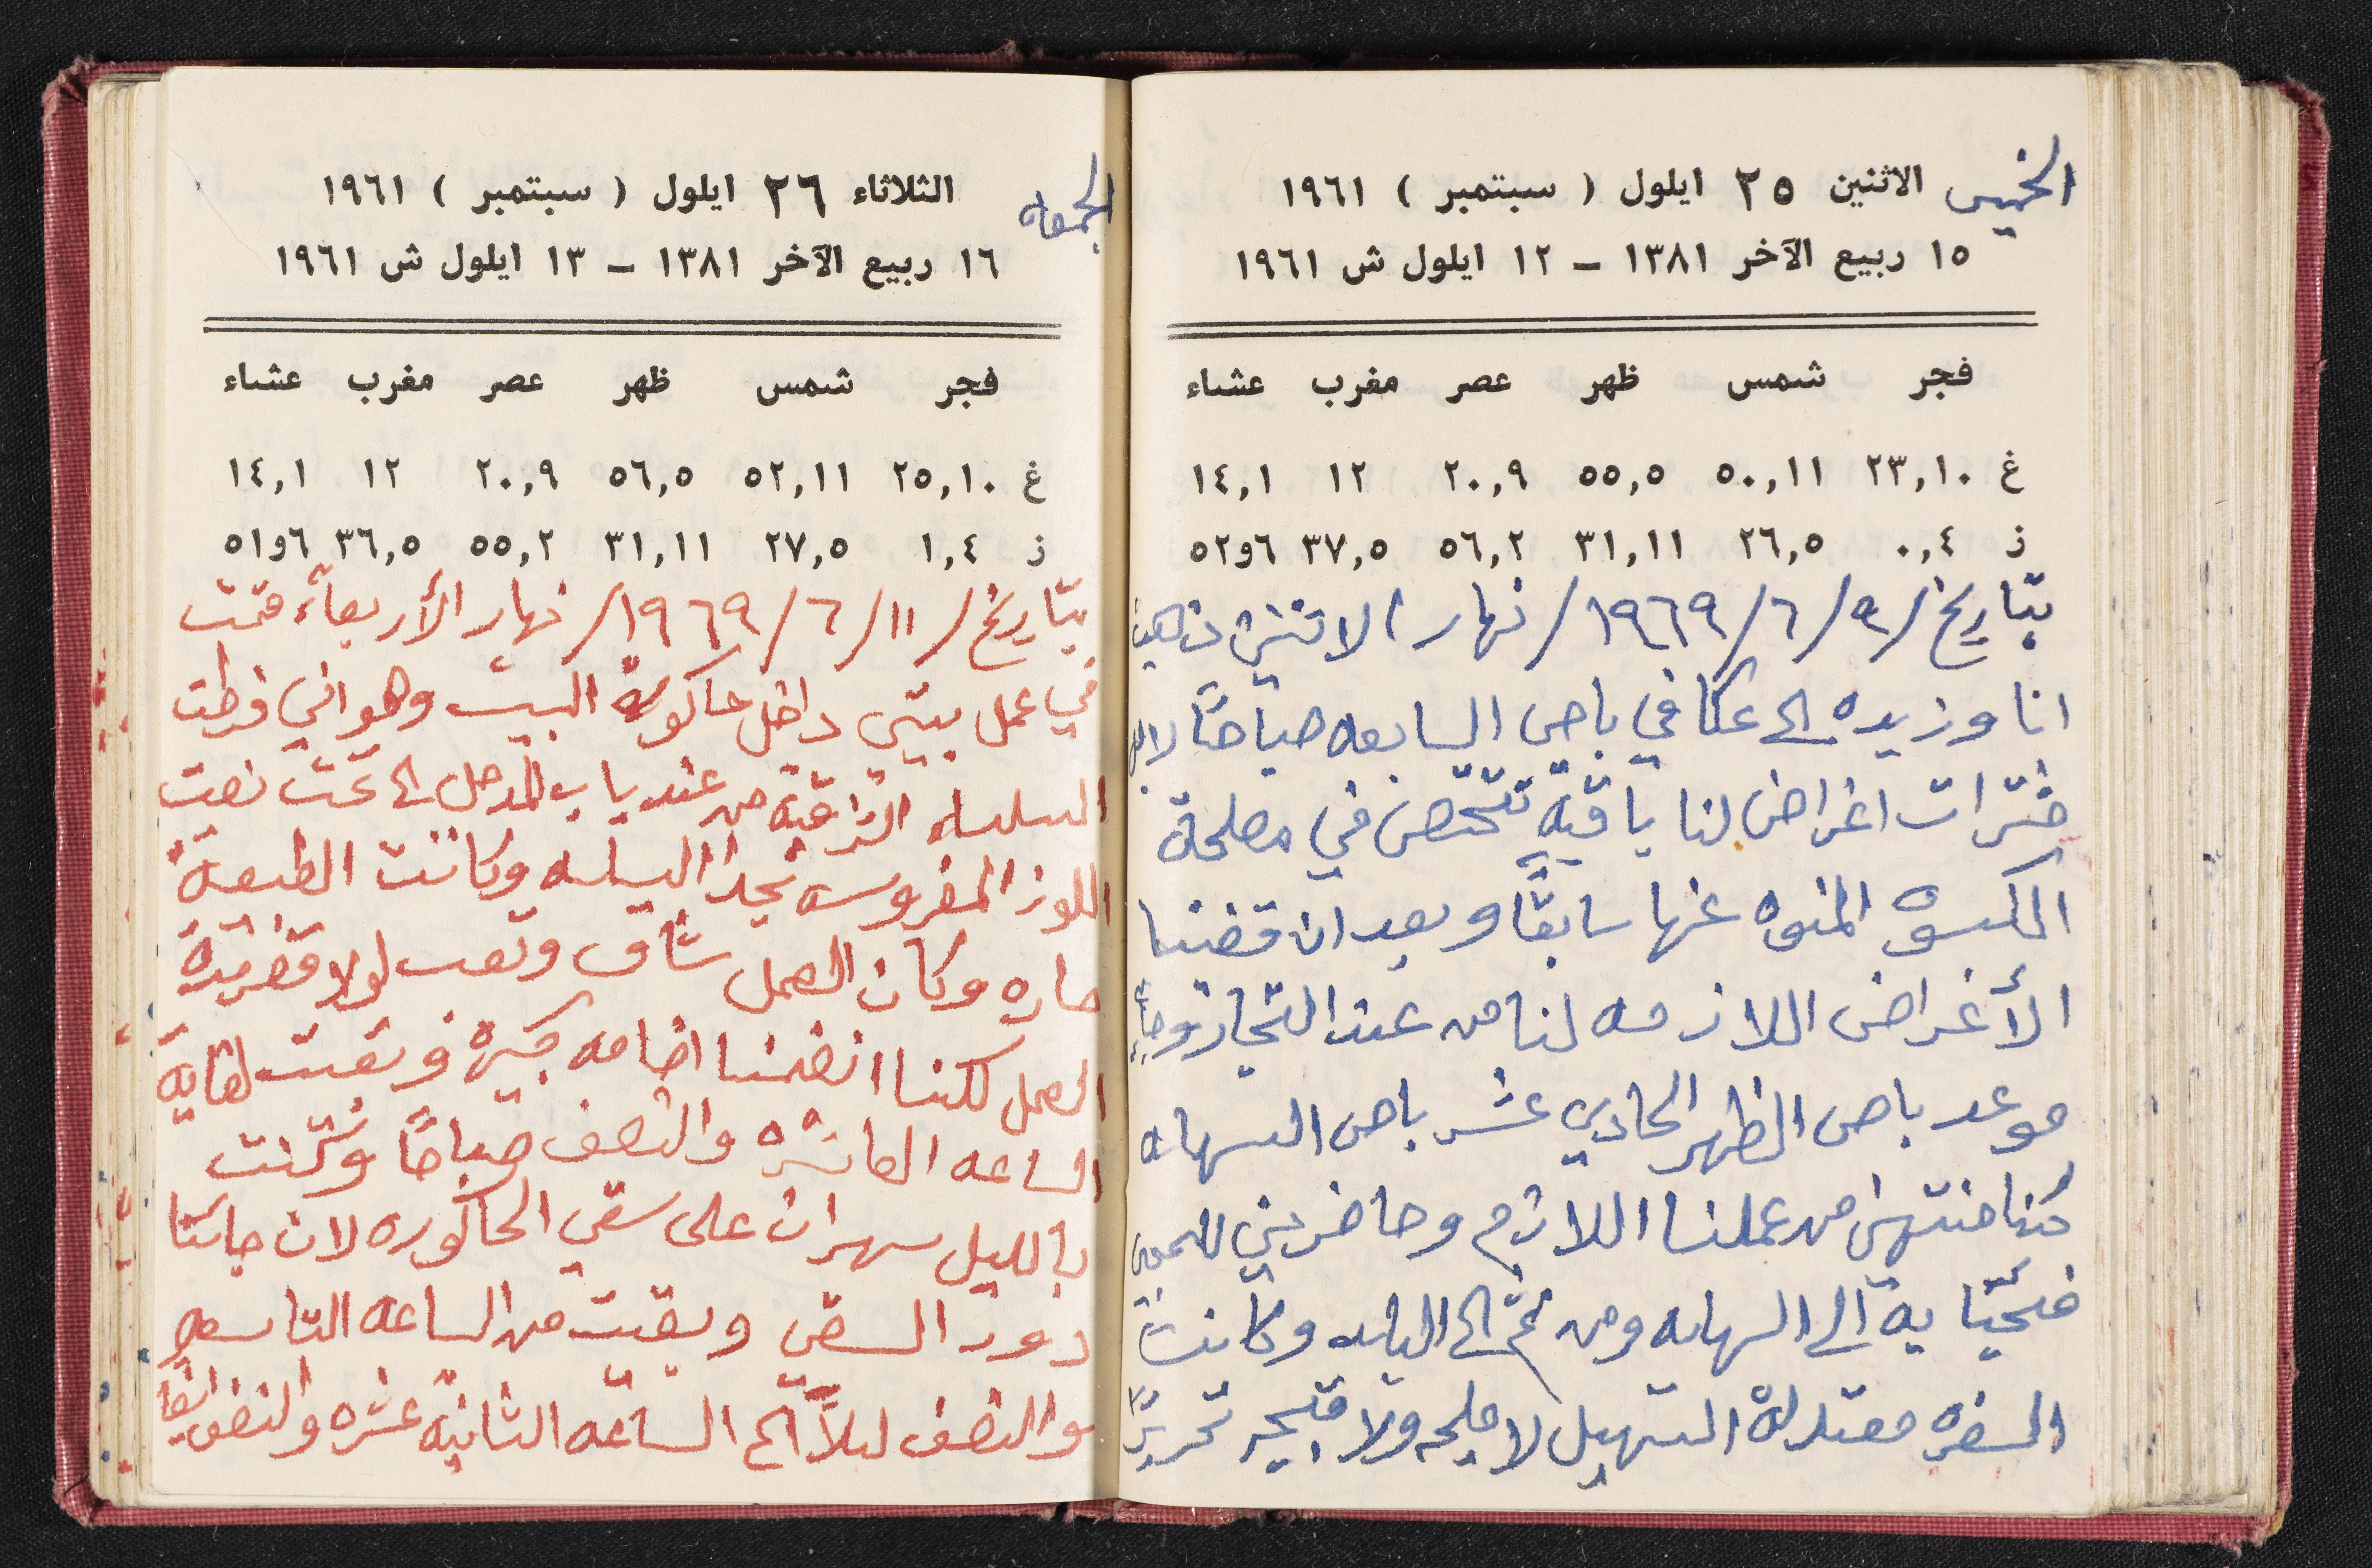 الخميس
الاثنين ٢٥ ايلول ( سبتمبر ) ١٩٦١
١٥ ربيع الآخر ١٣٨١ – ١٢ ايلول ش ١٩٦١
فجر شمس ظهر عصر مغرب عشاء
غ ٢٣,١٠ ٥٠,١١ ٥٥,٥ ٢٠,٩ ١٢ ١٤,١
ز ٠,٤ ٢٦,٥ ٣١,١١ ٥٦,٢ ٣٧,٥ ٥٢و٦
بتاريخ/٩/٦/١٩٦٩/ نهار الاثنين ذهبت
انا وزيده الى عكا في باص السابعه صباحًا
اغراض لنا باقية تختص في مصلحة
الكسوه المنوه عنها سابقًا وبعد ان قضينا
الأغراض اللازمه لنا من عند التجار وجاء
موعد باص الظهر الحادي عشر باص السهله
كنا منتهين من عملنا اللازم وحاضرين
فجئنا به الى السهله ومن ثم الى البلد وكانت
السفره معتدلة التسهيل لا مليحه ولا قبيحه تحريرًا
الجمعه
الثلاثاء ٢٦ ايلول ( سبتمبر ) ١٩٦١
١٦ ربيع الآخر ١٣٨١ – ١٣ ايلول ش ١٩٦١
فجر شمس ظهر عصر مغرب عشاء
غ ٢٥,١٠ ٥٢,١١ ٥٦,٥ ٢٠,٩ ١٢ ١٤,١
ز ١,٤ ٢٧,٥ ٣١,١١ ٥٥,٢ ٣٦,٥ ٥١و٦
بتاريخ/١١/٦/١٩٦٩/ نهار الأربعاء قمت
في عمل بيتي داخل حاكورة البيت وهو اني فرطت
السلسله من عند باب المدخل الى تحت
اللوز المغروسه السلسله وكانت الطبعة
حاره وكان العمل شاق وتعب لولا
العمل لكننا اضامه كبيرة وبقيت لغاية
الساعه العاشره والنصف صباحًا وكنت
بالليل سهران على سقي الحاكوره لان جائنا
دور السقي وبقيت من الساعه التاسعه
والنصف ليلاً الى الساعه الثانية عشره والنصف ايضا